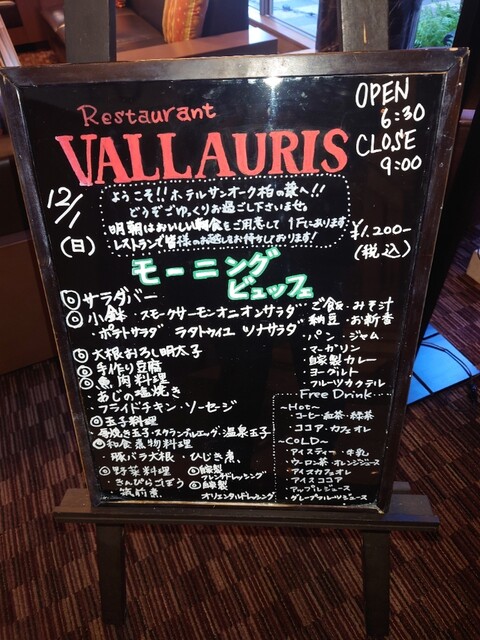 Restaurant
VALLAURIS
OPEN
6:30
CLOSE
9:00
12/1
(日)
ようこそ!!ホテルサンオーク柏の葉へ!!
どうぞごゆっくりお過ごし下さいませ。
明朝はおいしい朝食をご用意して 1Fにあります
レストランで皆様のお越しをお待ちしております!
¥1.200-
(税込)
モーニング
ビュッフェ
◎サラダバー
◎小鉢・スモークサーモンオニオンサラダ
ポテトサラダ ラタトゥイユ ツナサラダ
◎大根おろし明太子
◎手作り豆腐
◎魚肉料理
あじの塩焼き
・フライドチキン・ソーセージ
◎玉子料理
・スクランブルエッグ・温泉玉子
◎和食煮物料理
・豚バラ大根・ひじき煮、
◎野菜料理
・きんぴらごぼう
筑前煮
◎自家製
フレンチドレッシング
◎自家製
オリエンタルドレッシング
ご飯・みそ汁
納豆・お新香
・パン・ジャム
・マーガリン
・自家製カレー
・ヨーグルト
・フルーツカクテル
Free Drink
~Hot~
・コーヒー・紅茶・緑茶
・ココア・カフェオレ
~COLD~
・アイスティー・牛乳
・ウーロン茶・オレンジジュース
・アイスカフェオレ
・アイスココア
・アップルジュース
・グレープフルーツジュース